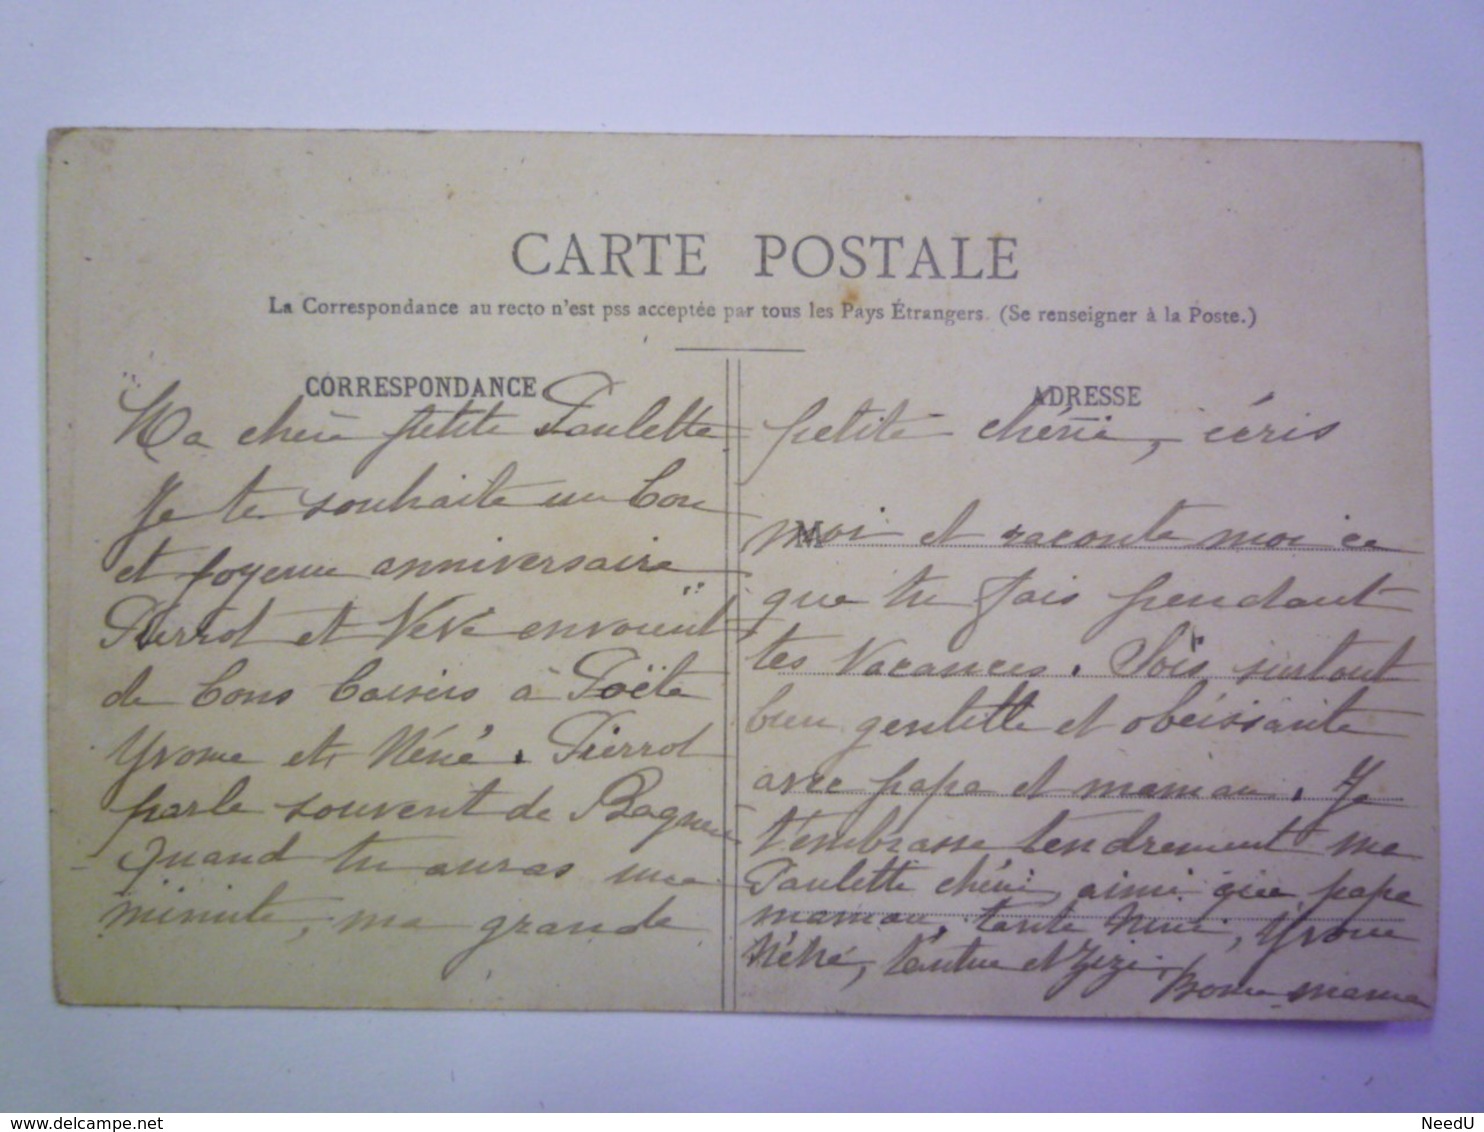 CARTE POSTALE
La Correspondance au recto n'est pss acceptée par tous les Pays Étrangers. (Se renseigner à la Poste.)
CORRESPONDANCE
Ma chère petite Paulette
Je te souhaite un bon
et joyeux anniversaire
Pierrot et Vévé envoient
de bons baisers à Poëte
Yvonne et Néné. Pierrot
parle souvent de
Quand tu auras une
minute, ma grande
ADRESSE
petite chérie, écris
M
moi et raconte moi ce
que tu fais pendant
tes vacances. Sois surtout
bien gentille et obéissante
avec papa et maman. Je
t'embrasse tendrement ma
Paulette chérie, ainsi que papa
maman, tante Nini, Yvonne
Néné, et Zizi.
Bonne maman
NeedU